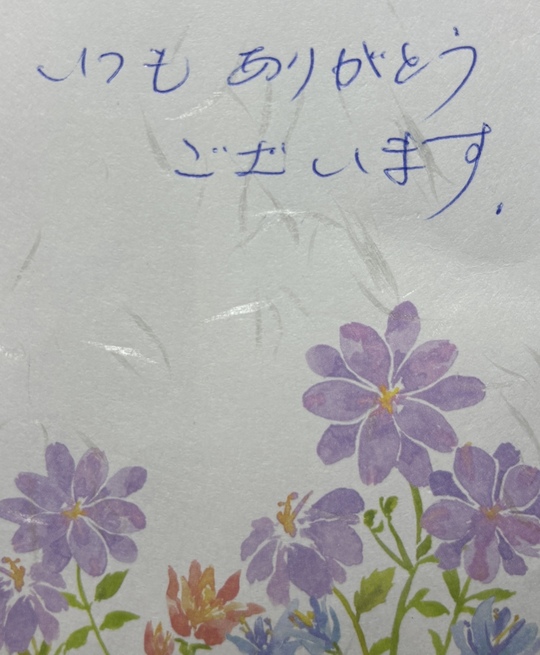 いつも ありがとう
ございます.